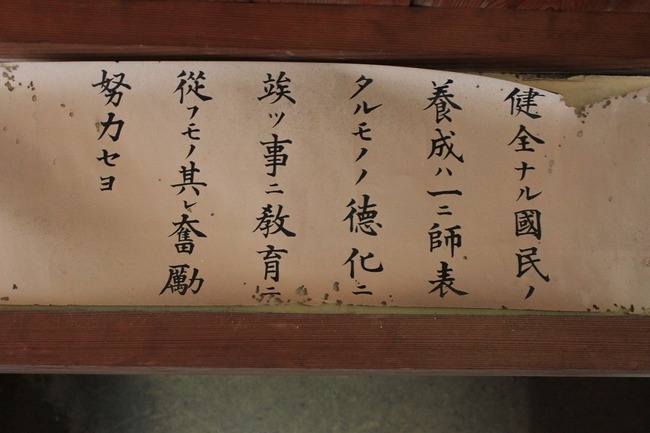 健全ナル國民ノ
養成ハ一ニ師表
タルモノノ德化ニ
竢ツ事ニ教育ニ
從フモノ其レ奮勵
努力セヨ